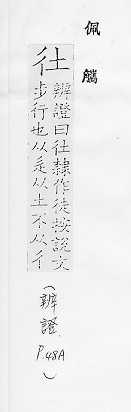 佩觿
𢓸
辨證曰𢓸隸作徒按說文
步行也从辵从土不从彳
(辨證 P.48A)